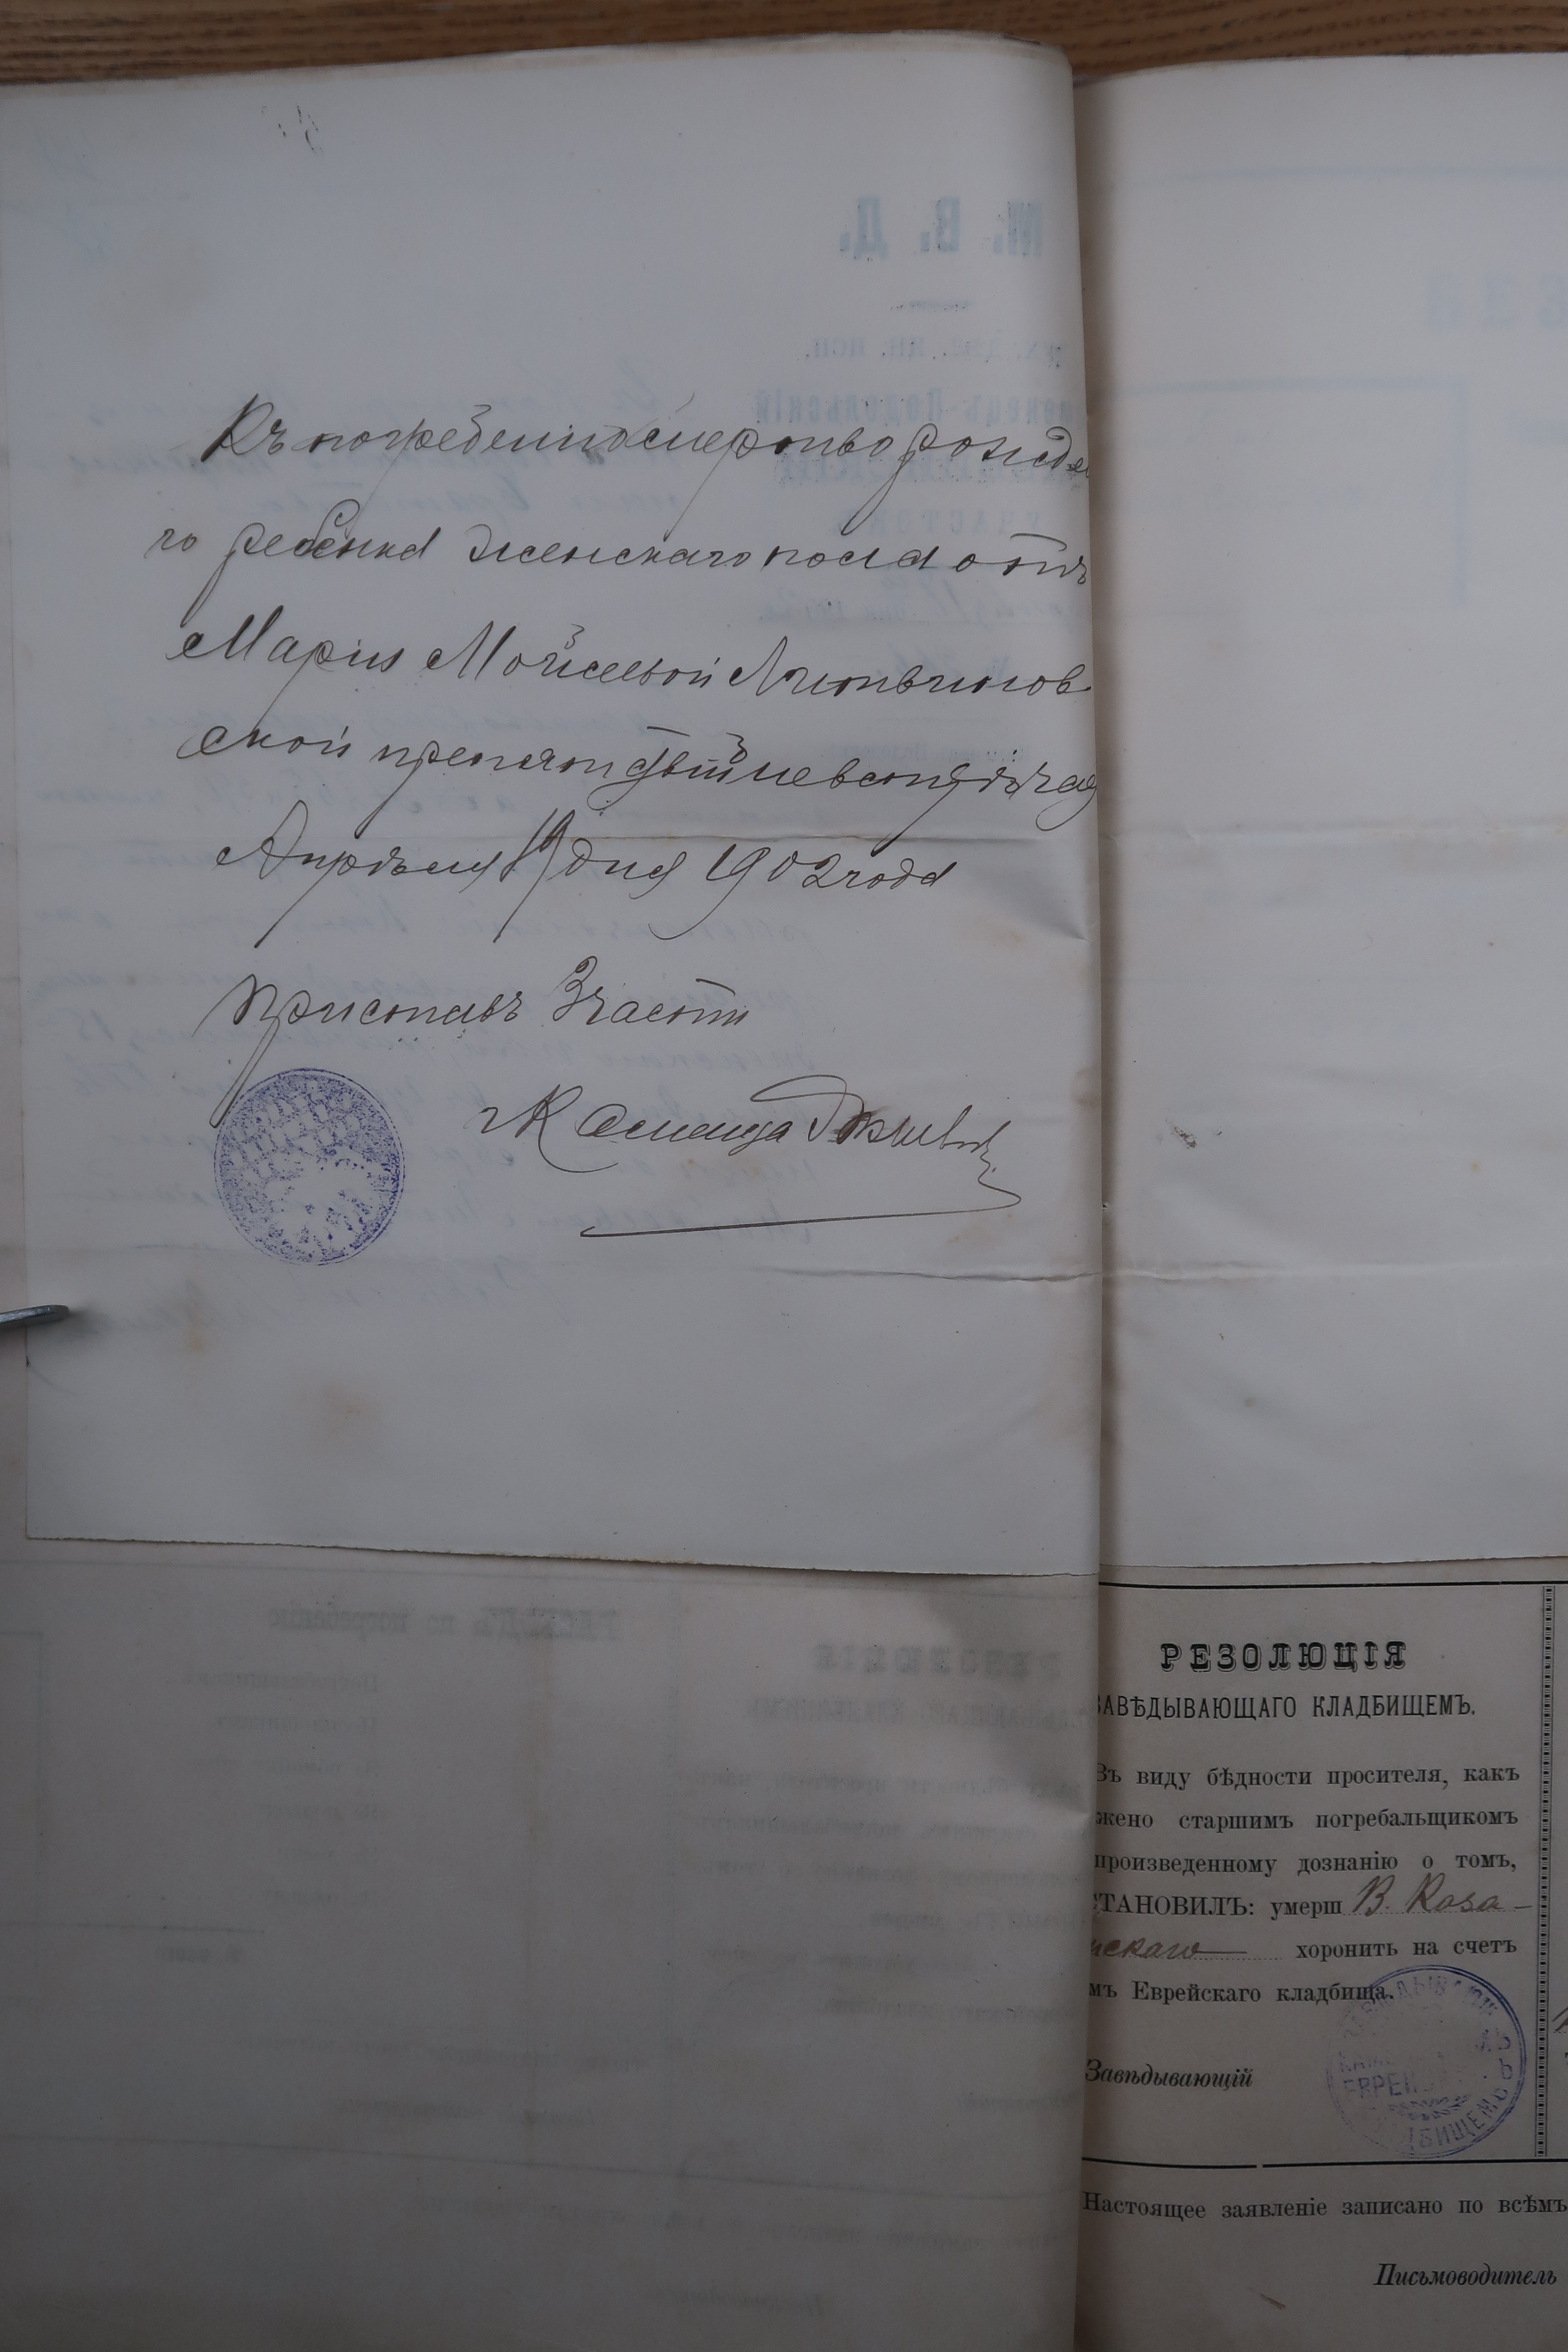 Къ погребенію мертворожде
го ребенка женскаго пола отъ
Маріи Мойсеевой Литвинов
ской препятствій не встрѣчае
Апрѣля 19 дня 1902 года
Приставъ 3 части
РЕЗОЛЮЦІЯ
ЗАВѢДЫВАЮЩАГО КЛАДБИЩЕМЪ.
Въ виду бѣдности просителя, какъ
жено старшимъ погребальщикомъ
произведенному дознанію о томъ,
СТАНОВИЛЪ: умерш В. Коза-
нскаго хоронить на счетъ
мъ Еврейскаго кладбища.
Завѣдывающій
Настоящее заявленіе записано по всѣмъ
Письмоводитель